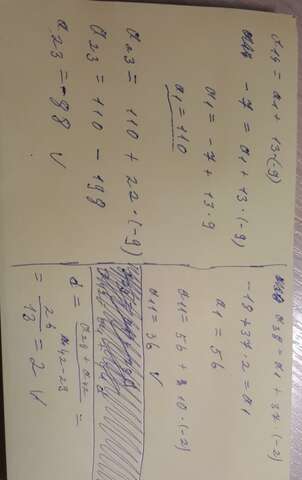 a14 = a1 + 13·(-9)
-7 = a1 + 13·(-9)
a1 = -7 + 13·9
a1 = 110
a23 = 110 + 22·(-9)
a23 = 110 - 198
a23 = -88 V
a38 = a1 + 37·(-2)
-18 + 37·2 = a1
a1 = 56
a11 = 56 + 10·(-2)
a11 = 36 V
d = =
= 26/13 = 2 V